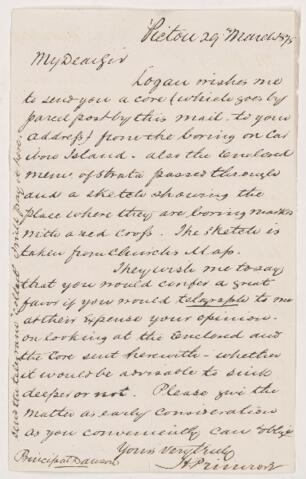 Pictou 29 March 1875
My Dear Sir
Logan wishes me
to send you a core (which goes by
parcel post by this mail to your
address) from the boring on Car
ibou Island - also the Enclosed
mem. of strata passed through
and a sketch showing the
place where they are boring marked
with a red cross. The sketch is
taken from Church's Map.
They wish me to say
that you would confer a great
favor if you would telegraph to me
at their Expense your opinion
on looking at the Enclosed and
the Core sent herewith - whether
it would be advisable to sink
deeper or not. Please give the
matter as early consideration
as you conveniently can & oblige
Yours very truly
H Primrose
Principal Dawson
send the telegram "collect" I will pay it here.